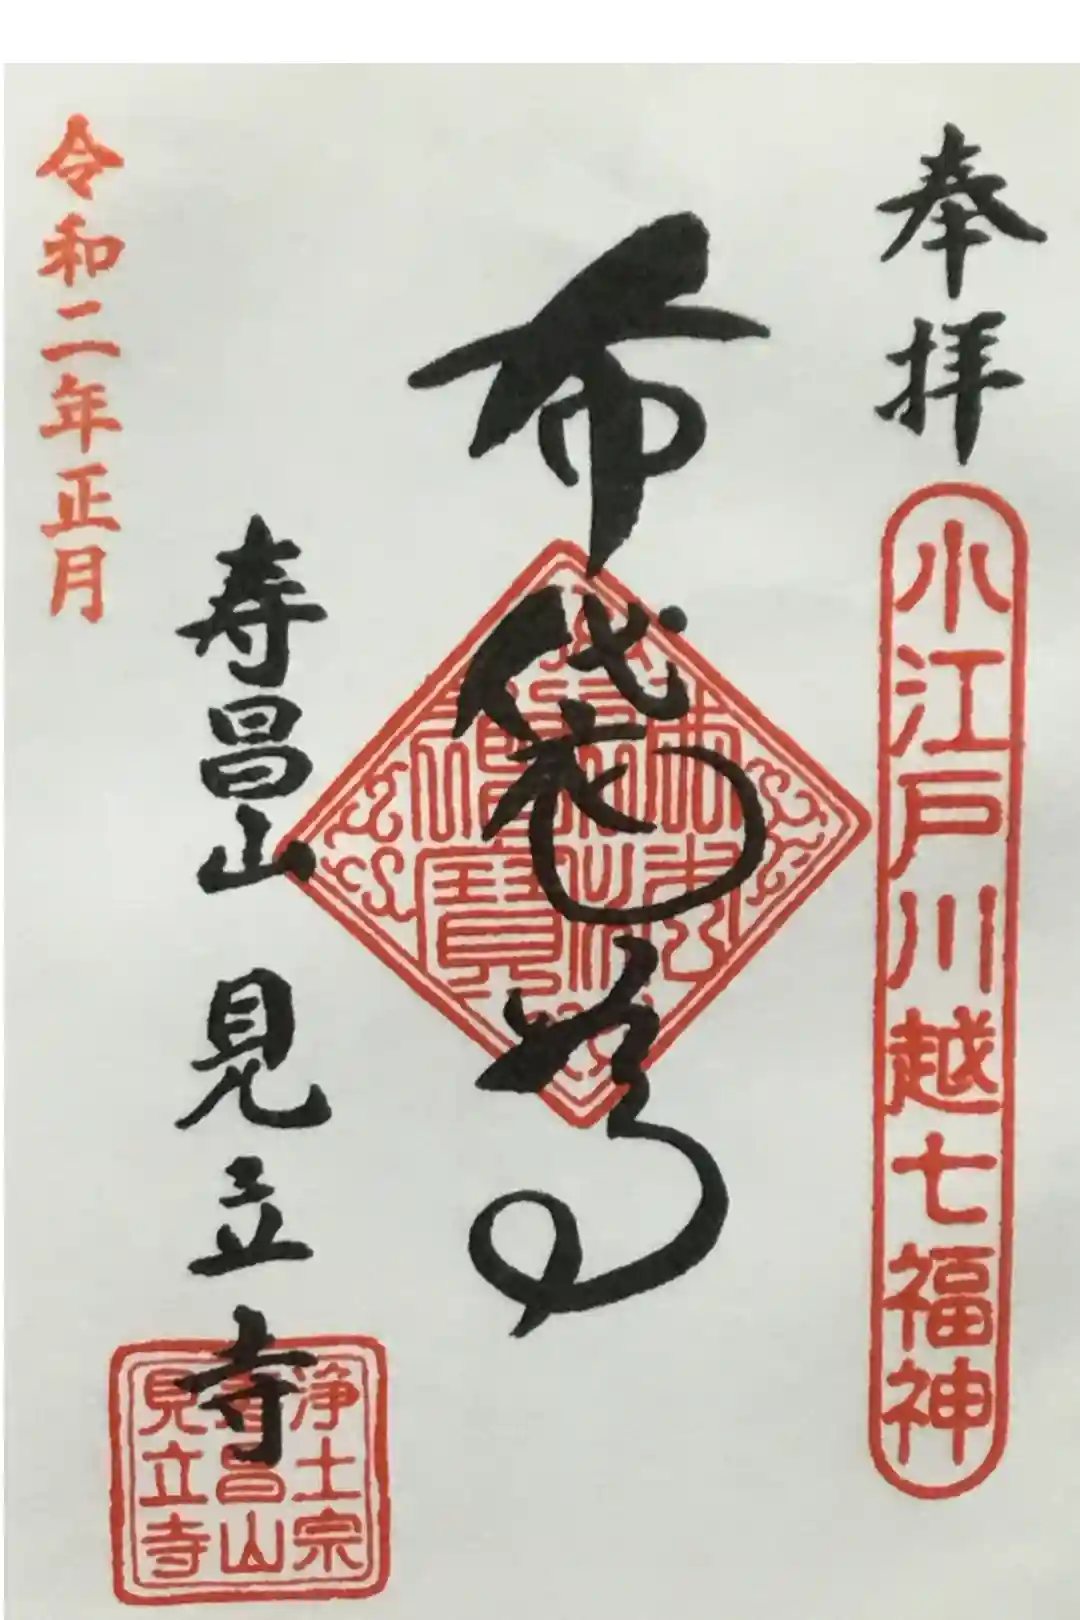 奉拝
小江戸川越七福神
布袋尊
寿昌山 見立寺
浄土宗
寿昌山
見立寺
令和二年正月